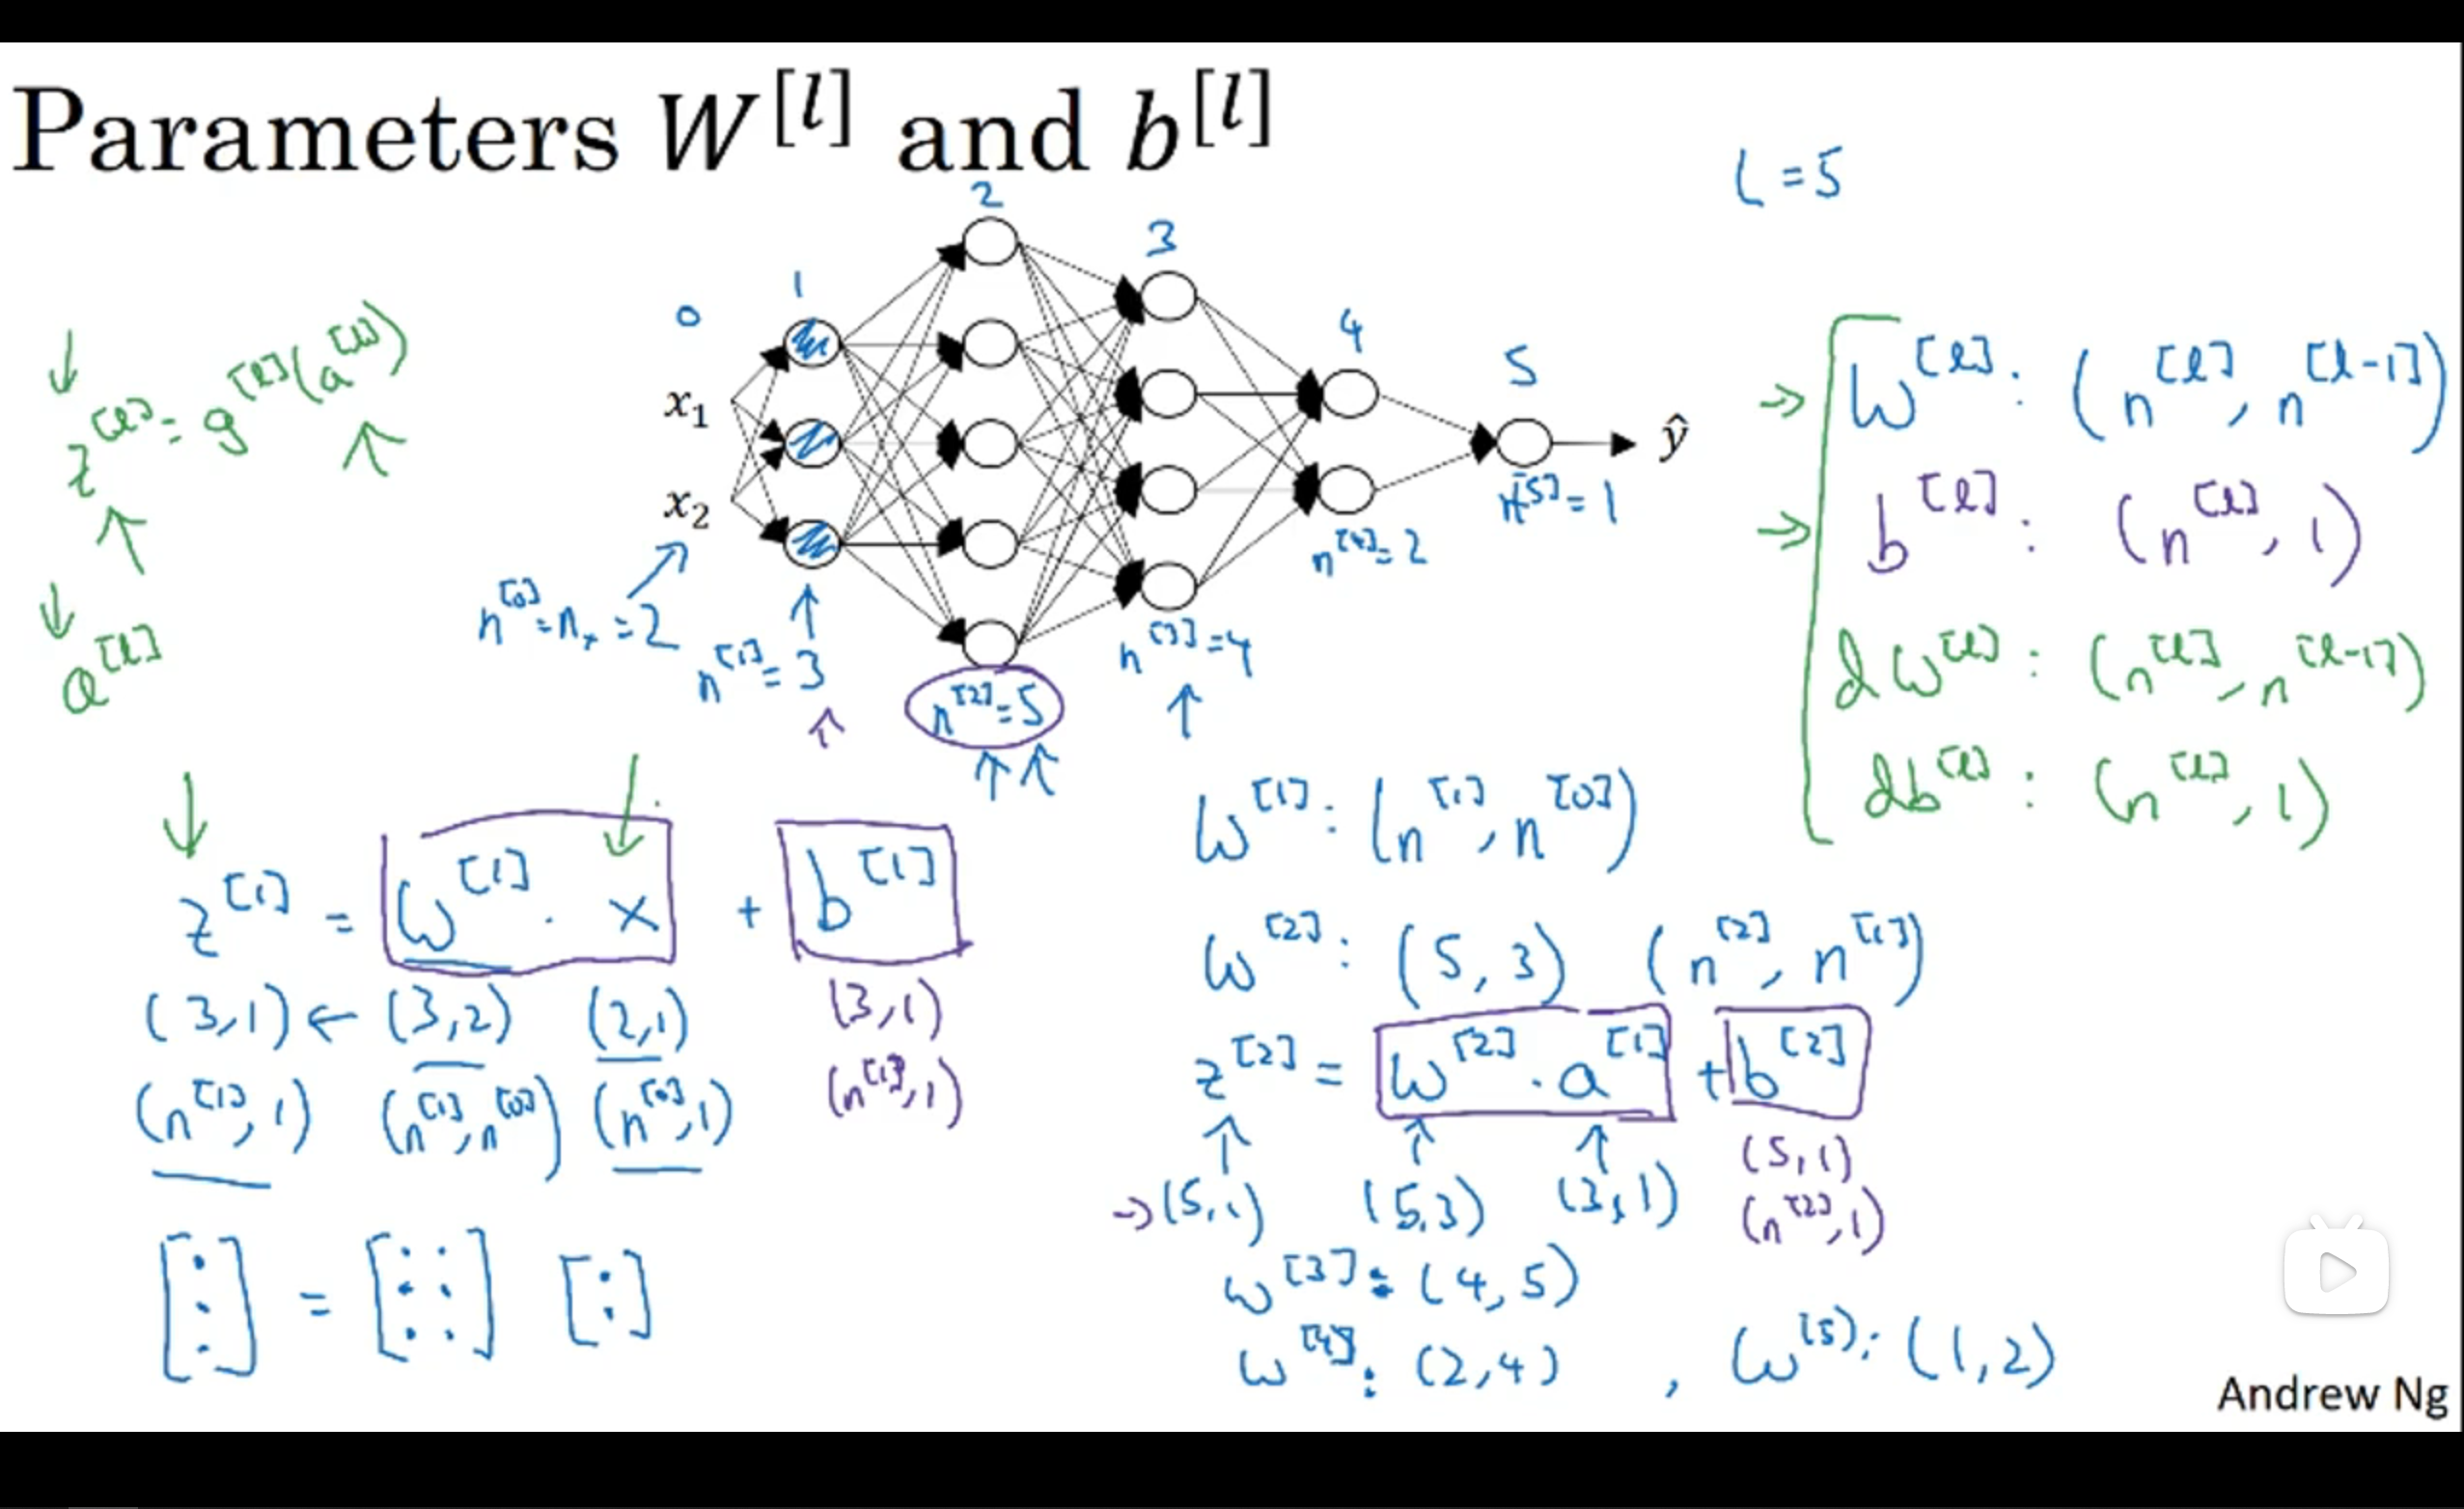 Parameters W^[l] and b^[l]
L = 5
0 1 2 3 4 5
x₁
x₂
ŷ
n^[0] = nₓ = 2
n^[1] = 3
n^[2] = 5
n^[3] = 4
n^[4] = 2
n^[5] = 1
↓
z^[l] = g^[l](a^[l])
↑ ↑
↓
a^[l]
→ W^[l] : (n^[l], n^[l-1])
→ b^[l] : (n^[l], 1)
dW^[l] : (n^[l], n^[l-1])
db^[l] : (n^[l], 1)
z^[1] = W^[1] · x + b^[1]
(3,1) ← (3,2) (2,1) (3,1)
(n^[1], 1) (n^[1], n^[0]) (n^[0], 1) (n^[1], 1)
[⋮] = [⋮ ⋮] [:]
W^[1] : (n^[1], n^[0])
W^[2] : (5, 3) (n^[2], n^[1])
z^[2] = W^[2] · a^[1] + b^[2]
→ (5,1) (5,3) (3,1) (5,1)
(n^[2], 1)
W^[3] : (4, 5)
W^[4] : (2, 4) , W^[5] : (1, 2)
Andrew Ng